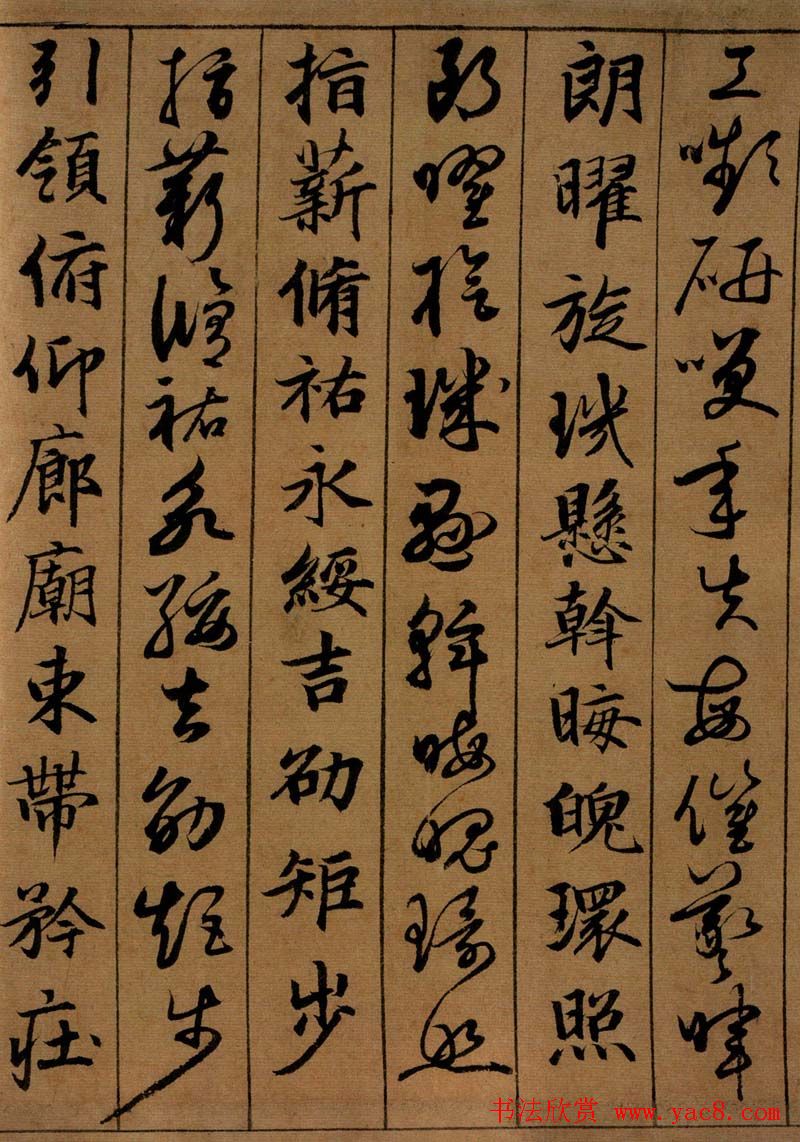 工嚬研咲年矢每催羲暉
朗曜旋璣懸斡晦魄環照
朗曜旋璣懸斡晦魄環照
指薪脩祐永綏吉劭矩步
指薪脩祐永綏吉劭矩步
引領俯仰廊廟束帶矜莊
书法欣赏 www.yac8.com